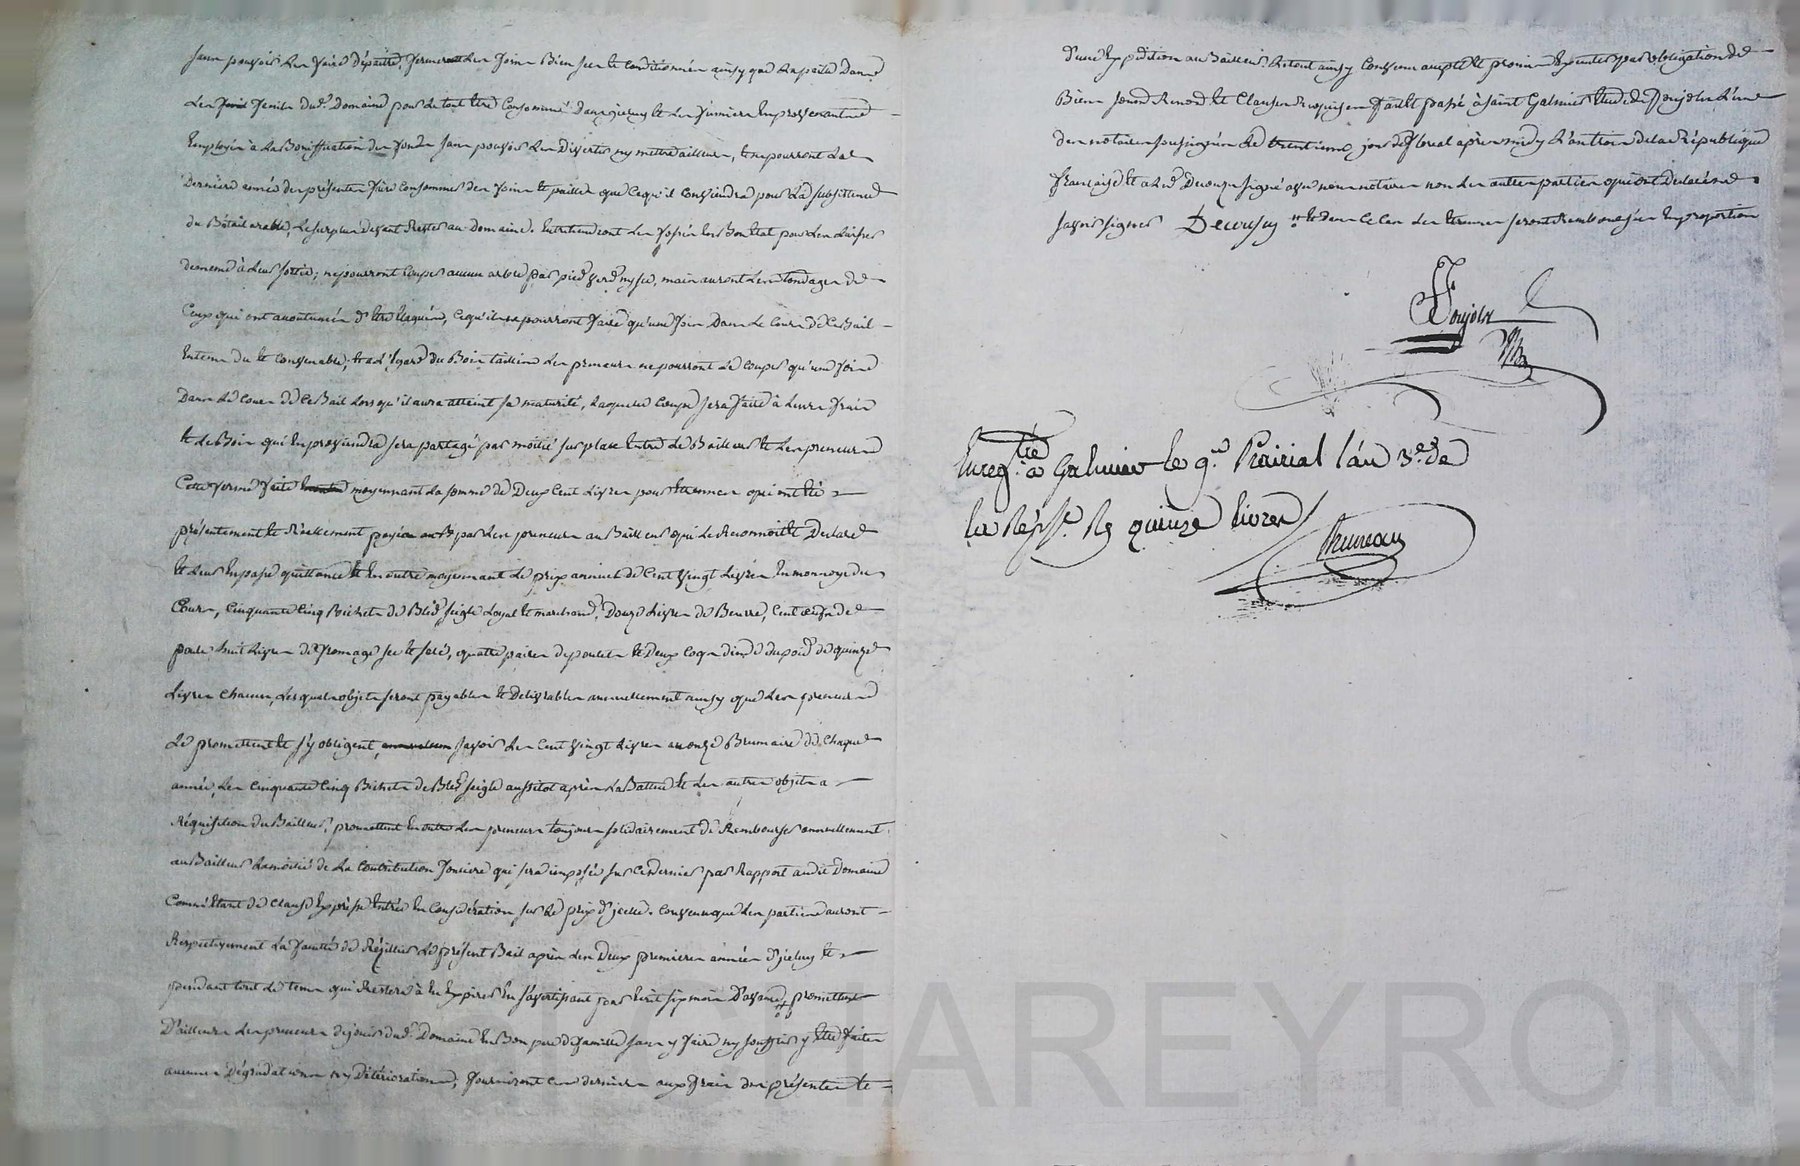 sans pouvoir les faire dépaitre, fermeront les foins bien sec et conditionnés ainsy que la paille dans
les fenils dud. Domaine pour le tout être consommé dans iceluy et les fumiers en provenants
employés à la boniffication des fonds sans pouvoir les divertir ny mettre ailleurs, et ne pourront la
derniere année des présentes faire consommer des foins et pailles que ce qu'il conviendra pour la subsistence
du bétail arable, le surplus devant rester au domaine. Entretiendront les fossés en bon état pour les laisser
de meme à leur sortie; ne pourront couper aucun arbre par pied verd ny sec, mais auront les tondages de
ceux qui ont accoutumés d'être élagués, ce qu'ils ne pourront faire qu'une fois dans le cours de ce bail
entems du et convenable; et à l'égard du bois taillis les preneurs ne pourront le couper qu'une fois
dans le cours de ce bail lorsqu'il aura atteint sa maturité, laquelle coupe sera faite à leurs frais
et le bois qui en proviendra sera partagé par moitié sur place entre le bailleur et les preneurs
Cette ferme faite moyennant la somme de deux cent livres pour étrennes qui ont été
présentement et réellement payées par les preneurs au bailleur qui le reconnoit et declare
et leur en passe quittance et en outre moyennant le prix annuel de cent vingt livres en monnoye du
cours, cinquante cinq bichets de bled seigle loyal et marchand, douze livres de beurre, cent oeufs de
poule, huit livres de fromage sec et salé, quatre paires de poulets et deux coqs dinde du poid de quinze
livres chacun, lesquels objets seront payables et delivrables annuellement ainsy que les preneurs
le promettent et s'y obligent, savoir les cent vingt livres au onze Brumaire de chaque
année, les cinquante cinq bichets de bled seigle aussitot après la battue et les autres objets a
réquisition du bailleur, promettent en outre les preneurs toujours solidairement de rembourser annuellement
au bailleur la moitié de la contribution fonciere qui sera imposée sur ce dernier par rapport audit domaine
comm'étant de clause expresse entrée en considération sur le prix d'icelle. Convenu que les parties auront
respectivement la faculté de résillier le présent bail après les deux premieres années d'iceluy et
pendant tout le tems qui restera à en expirer en s'avertissant par écrit six mois d'avance, promettent
d'ailleurs les preneurs de jouir dud. Domaine en bon pere de famille sans y faire ny souffrir y être faites
aucunes dégradations ny détériorations, fourniront ces derniers aux frais des présentes et
d'une expedition au bailleur. Le tout ainsy convenu accepté et promis éxécuter par obligation de
biens soumis renoncé et clauses requises. Fait et passé à Saint Galmier étude de Poujolx l'un
des notaires soussignés le trentieme jour de floreal après midy l'an trois de la République
française et a led. Decousu signé avec nous notaires non les autres parties qui ont declaré ne
savoir signer Decousu et dans ce cas les étrennes seront remboursées en proportion
Poujolx
Enreg.tré à Galmier le 9.e Prairial l'an 3.e de
la Rép.e R quinze livres
Thuneau
CHAREYRON